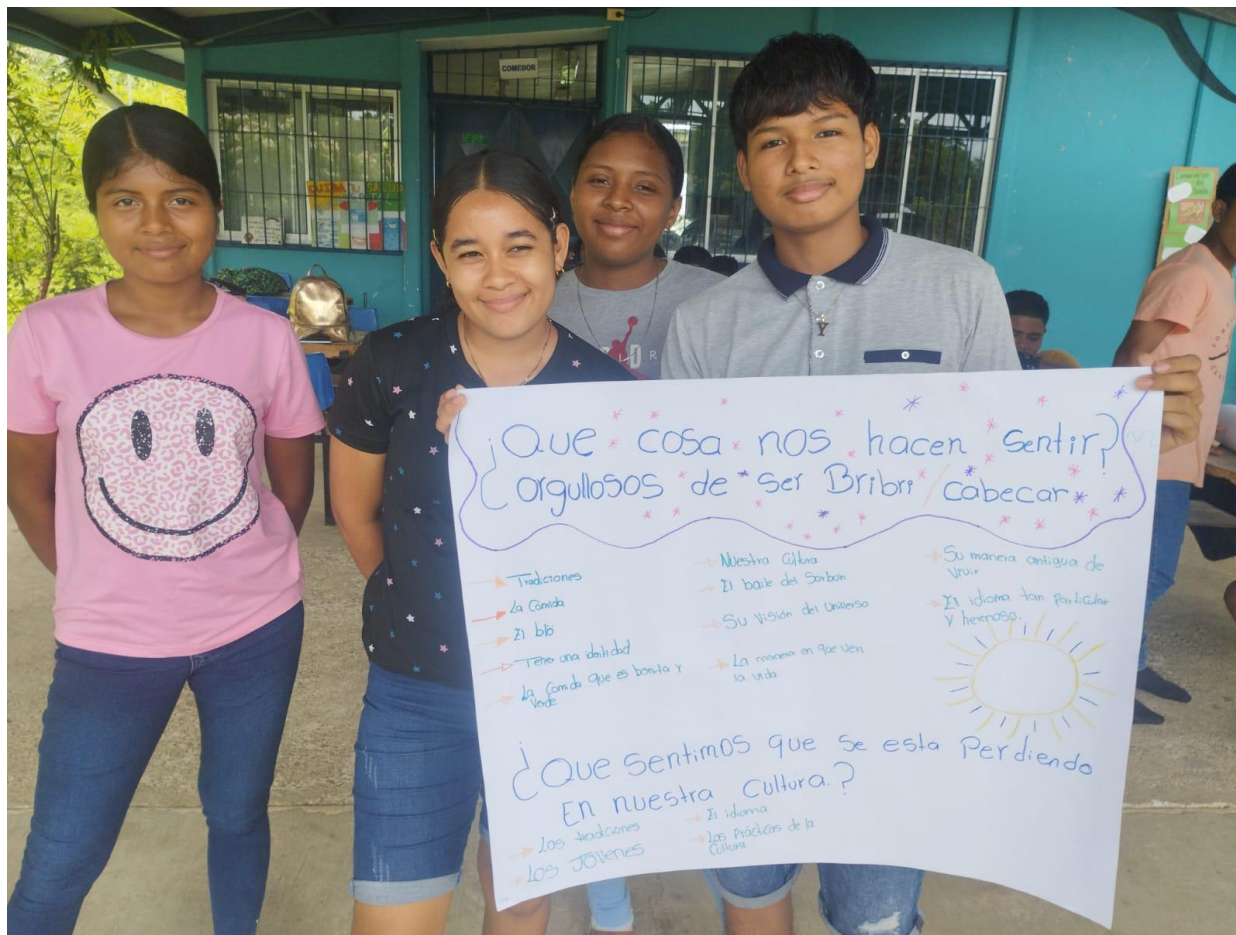 COMEDOR
¡Que cosa nos hacen sentir?
¿ orgullosos de ser Bribri / cabecar
Tradiciones
La Comida
El bló
Tener una identidad
La Comida que es bonita y
Verde
Nuestra Cultura
El baile del Sorbon
Su Visión del Universo
La manera en que ven
la vida
Su manera antigua de
vivir
El idioma tan particular
y hermoso.
¿Que sentimos que se esta Perdiendo
En nuestra Cultura.?
Las tradiciones
Los JÓVENES
El idioma
Las Prácticas de la
Cultura